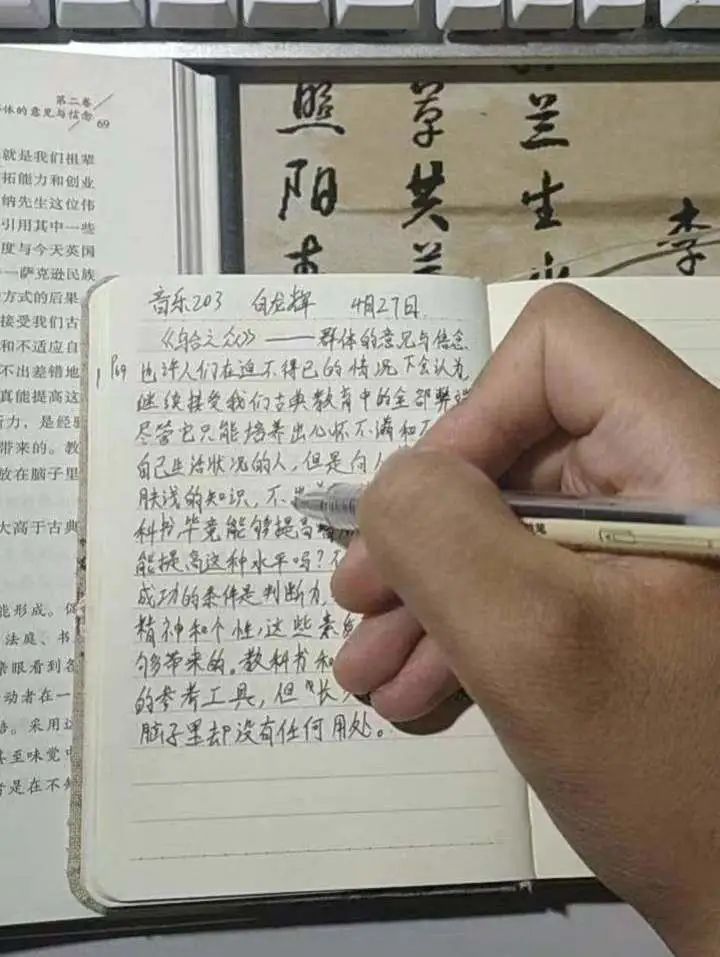 第二卷
体的意见与信念
69
就是我们祖辈
拓能力和创业
纳先生这位伟
引用其中一些
度与今天英国
萨克逊民族
方式的后果
接受我们古
和不适应自
不出差错地
真能提高这
力，是经
带来的。教
放在脑子里
大高于古典
能形成。
法庭、书
亲眼看到
动者在一
采用这
甚至味觉中
是在不
照 草 兰
阳 共 生
李
音乐203 白龙辉 4月27日
《乌合之众》——群体的意见与信念
P69 也许人们在迫不得已的情况下会认为
继续接受我们古典教育中的全部弊端
尽管它只能培养出心怀不满和不
自己生活状况的人，但是向人
肤浅的知识，不出差
科书毕竟能够提高
能提高这种水平吗？不
成功的条件是判断力，
精神和个性，这些素质
够带来的。教科书和
的参考工具，但“长
脑子里却没有任何用处。